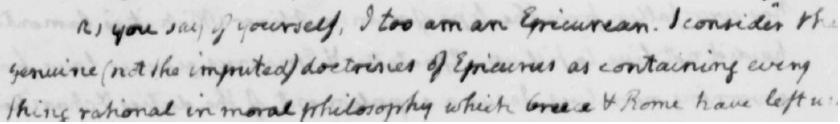 As you say of yourself, I too am an Epicurean. I consider the
genuine (not the imputed) doctrines of Epicurus as containing every
thing rational in moral philosophy which Greece & Rome have left us.